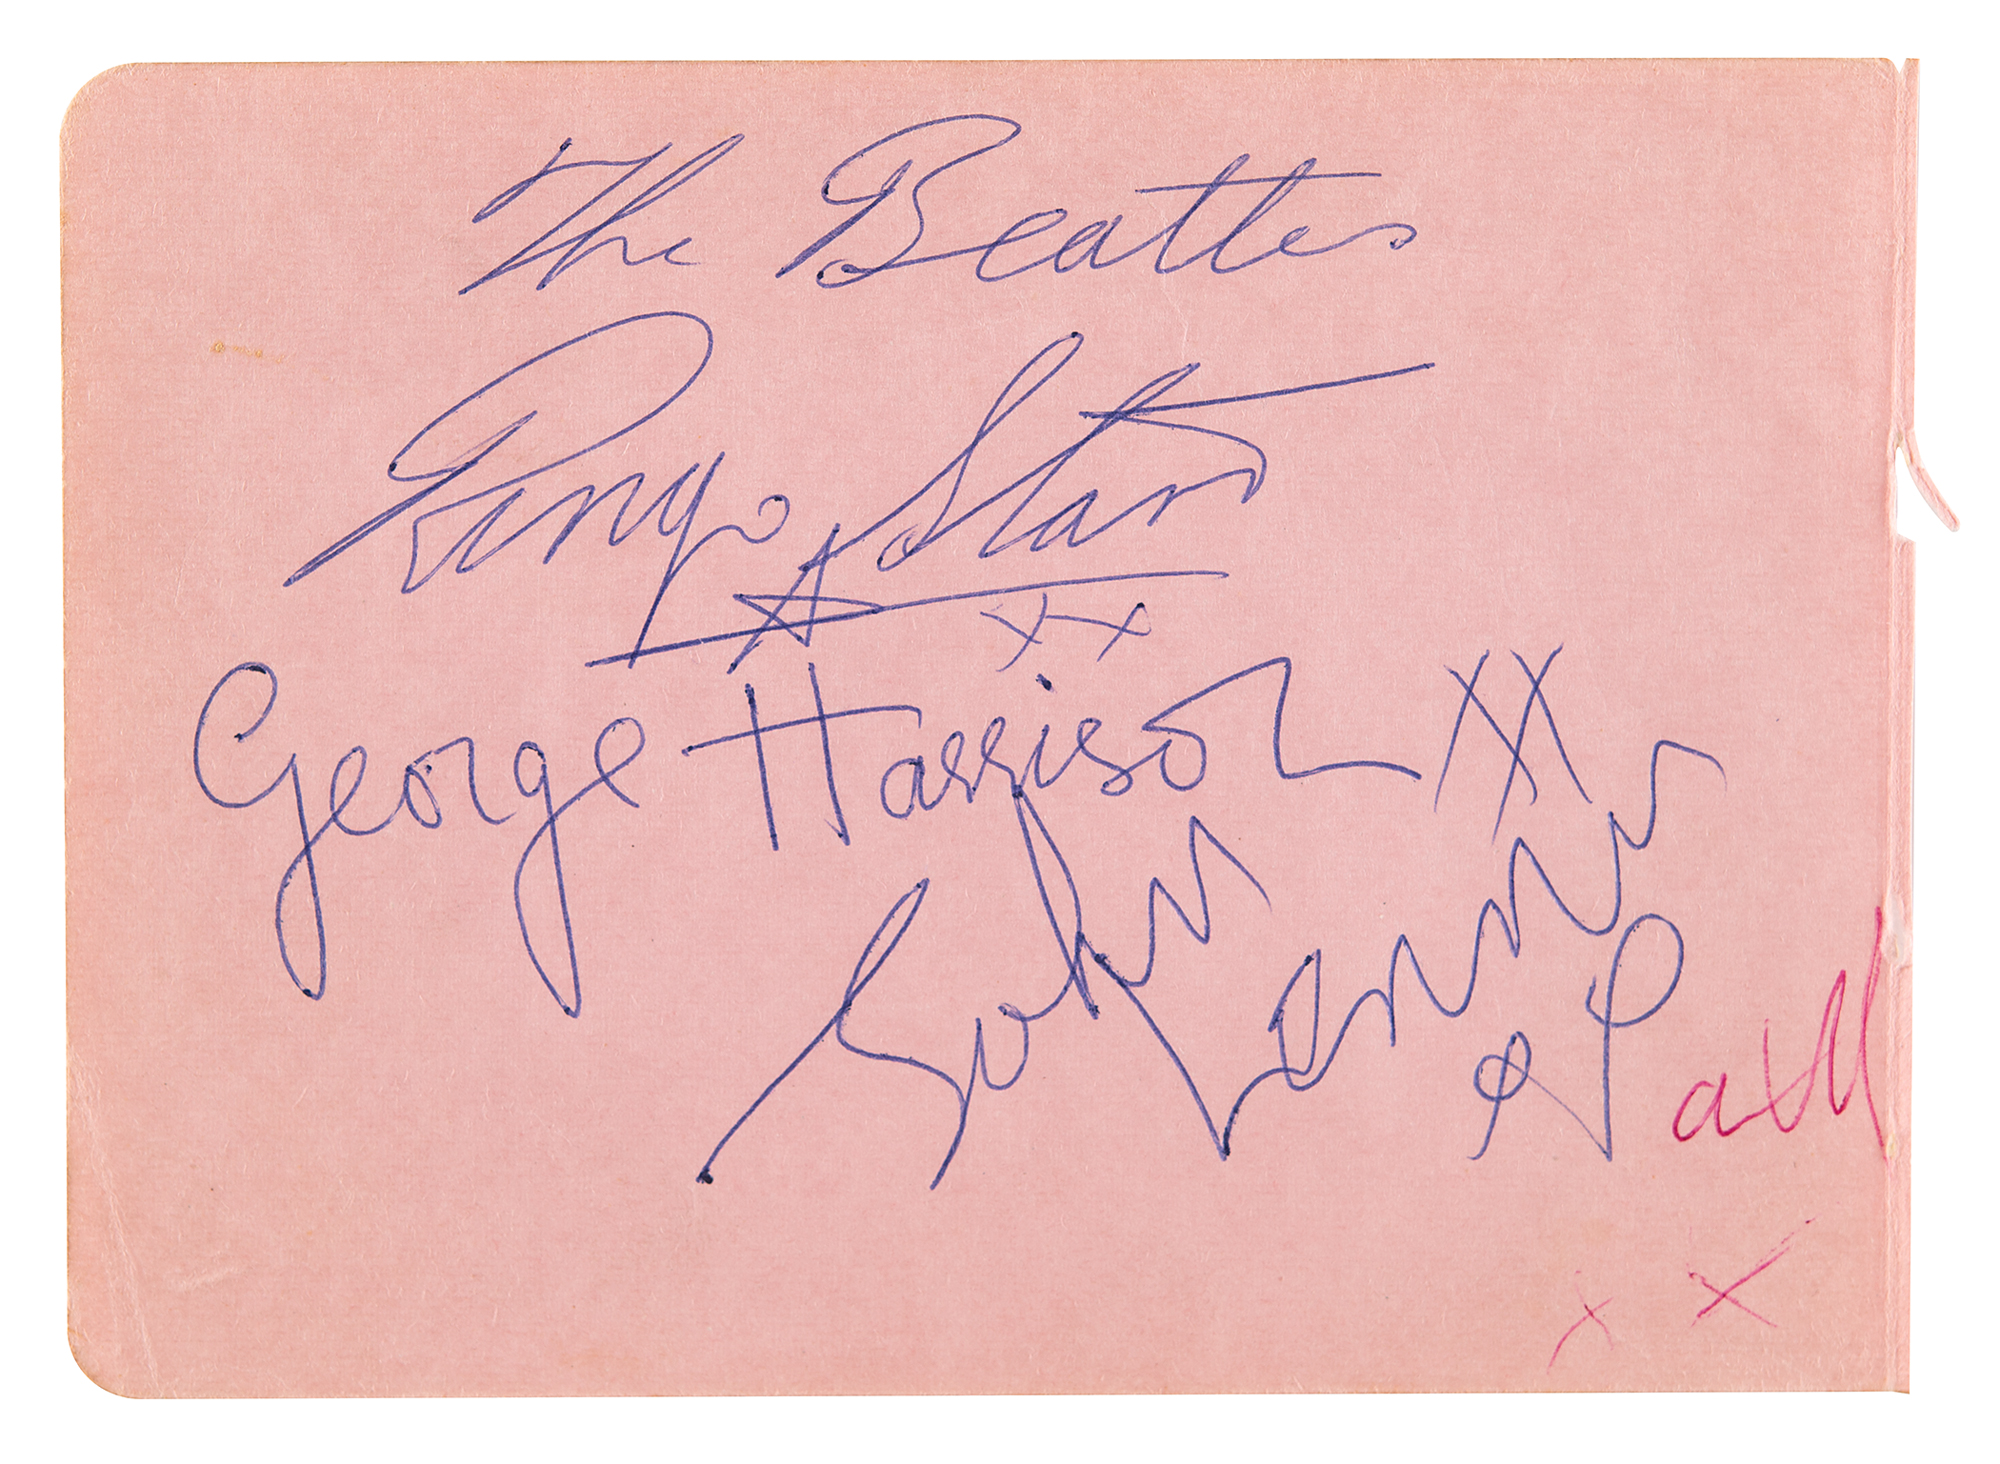 The Beatles
Ringo Starr
xx
George Harrison xx
John Lennon
x P
xx